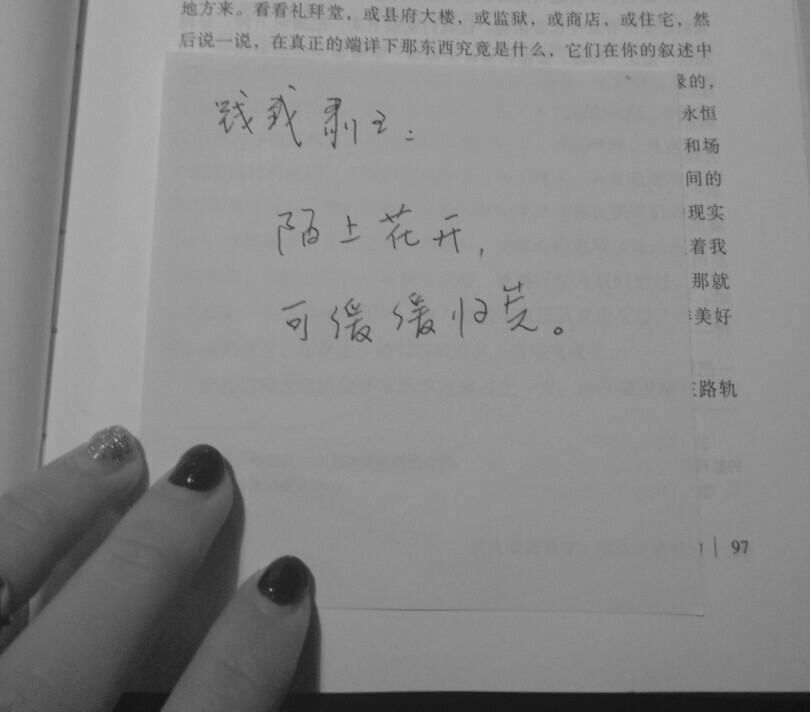 地方来。看看礼拜堂，或县府大楼，或监狱，或商店，或住宅，然
后说一说，在真正的端详下那东西究竟是什么，它们在你的叙述中
的，
永恒
和场
间的
现实
着我
那就
美好
路轨
97
陌上花开，
可缓缓归矣。